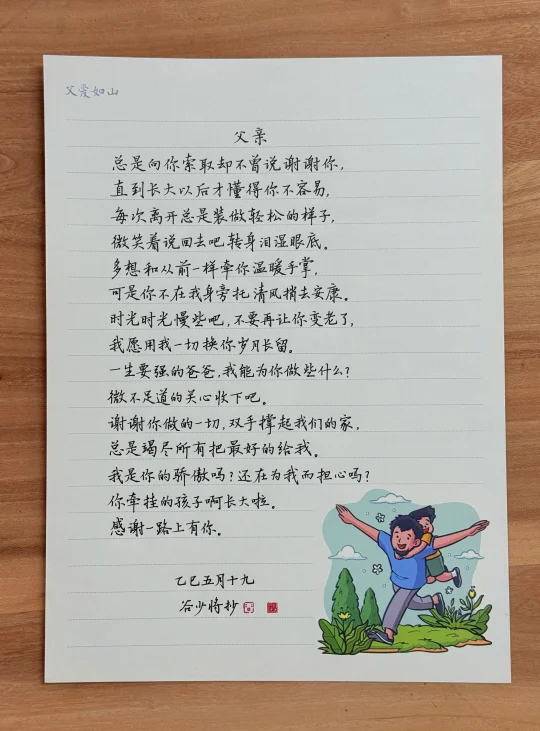 父爱如山
父亲
总是向你索取却不曾说谢谢你,
直到长大以后才懂得你不容易,
每次离开总是装做轻松的样子,
微笑着说回去吧,转身泪湿眼底。
多想和从前一样牵你温暖手掌,
可是你不在我身旁托清风捎去安康。
时光时光慢些吧,不要再让你变老了,
我愿用我一切换你岁月长留。
一生要强的爸爸,我能为你做些什么?
微不足道的关心收下吧。
谢谢你做的一切,双手撑起我们的家,
总是竭尽所有把最好的给我。
我是你的骄傲吗?还在为我而担心吗?
你牵挂的孩子啊长大啦。
感谢一路上有你。
乙巳五月十九
谷少将抄